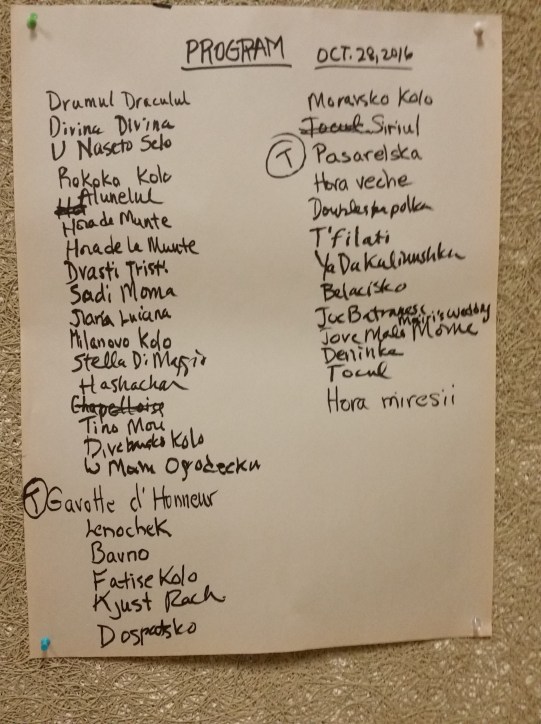 PROGRAM OCT. 28, 2016
Drumul Draculul
Divina Divina
U Naseto Selo
Rokoko Kolo
Alunelul
Hora de Munte
Hora de la Munte
Dvasti Tristi
Sadi Moma
Milanovo Kolo
Stella Di Maggio
Hashachar
Chapelloise
Tino Mori
Divcibarsko Kolo
U Mom Ogodecku
T Gavotte d'Honneur
Lenochek
Bavno
Fatise Kolo
Kjust Rach
Dospatsko
Moravsko Kolo
Jocul Siriul
T Pasarelska
Hora veche
Doudlebska polka
T'filati
Ya Da Kalinushku
Belacisko
Joc Batranesc Mairi's Wedding
Jove Male Mome
Deninka
Tocul
Hora miresii